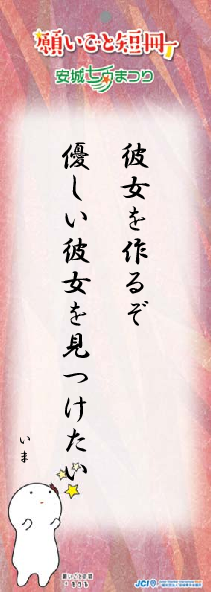 願いごと短冊
安城七夕まつり
彼女を作るぞ
優しい彼女を見つけたい
いま
願いごと短冊
JCI